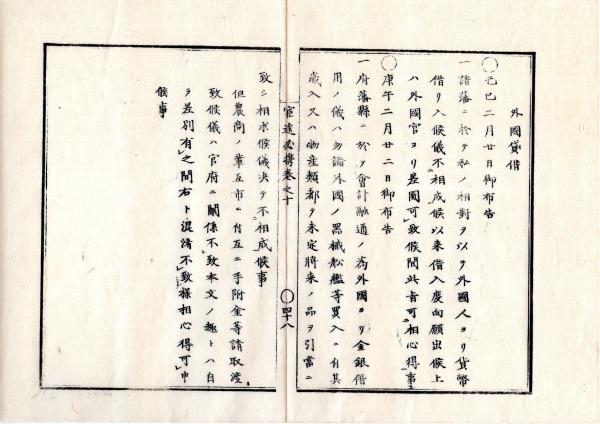 外國貸借
〇己巳二月廿日御布告
一諸藩ニ於テ私ノ相對ヲ以テ外國人ヨリ貨幣
借リ入候儀不相成候以来借入度向願出候上
ハ外國官ヨリ差圖可致候間此旨可相心得事
〇庚午二月廿二日御布告
一府藩縣ニ於テ會計融通ノ為外國ヨリ金銀借
用ノ儀ハ勿論外國ノ器械舩艦等買入ニ付其
歳入又ハ物産類都テ未定將来ノ品ヲ引當ニ
官途必携巻之十
〇四十八
致シ相求候儀決テ不相成候事
但農商ノ輩互市ニ付互ニ手附金等請取渡
致候儀ハ官府ニ關係不致本文ノ趣トハ自
ラ差別有之間右ト混淆不致様相心得可申
候事